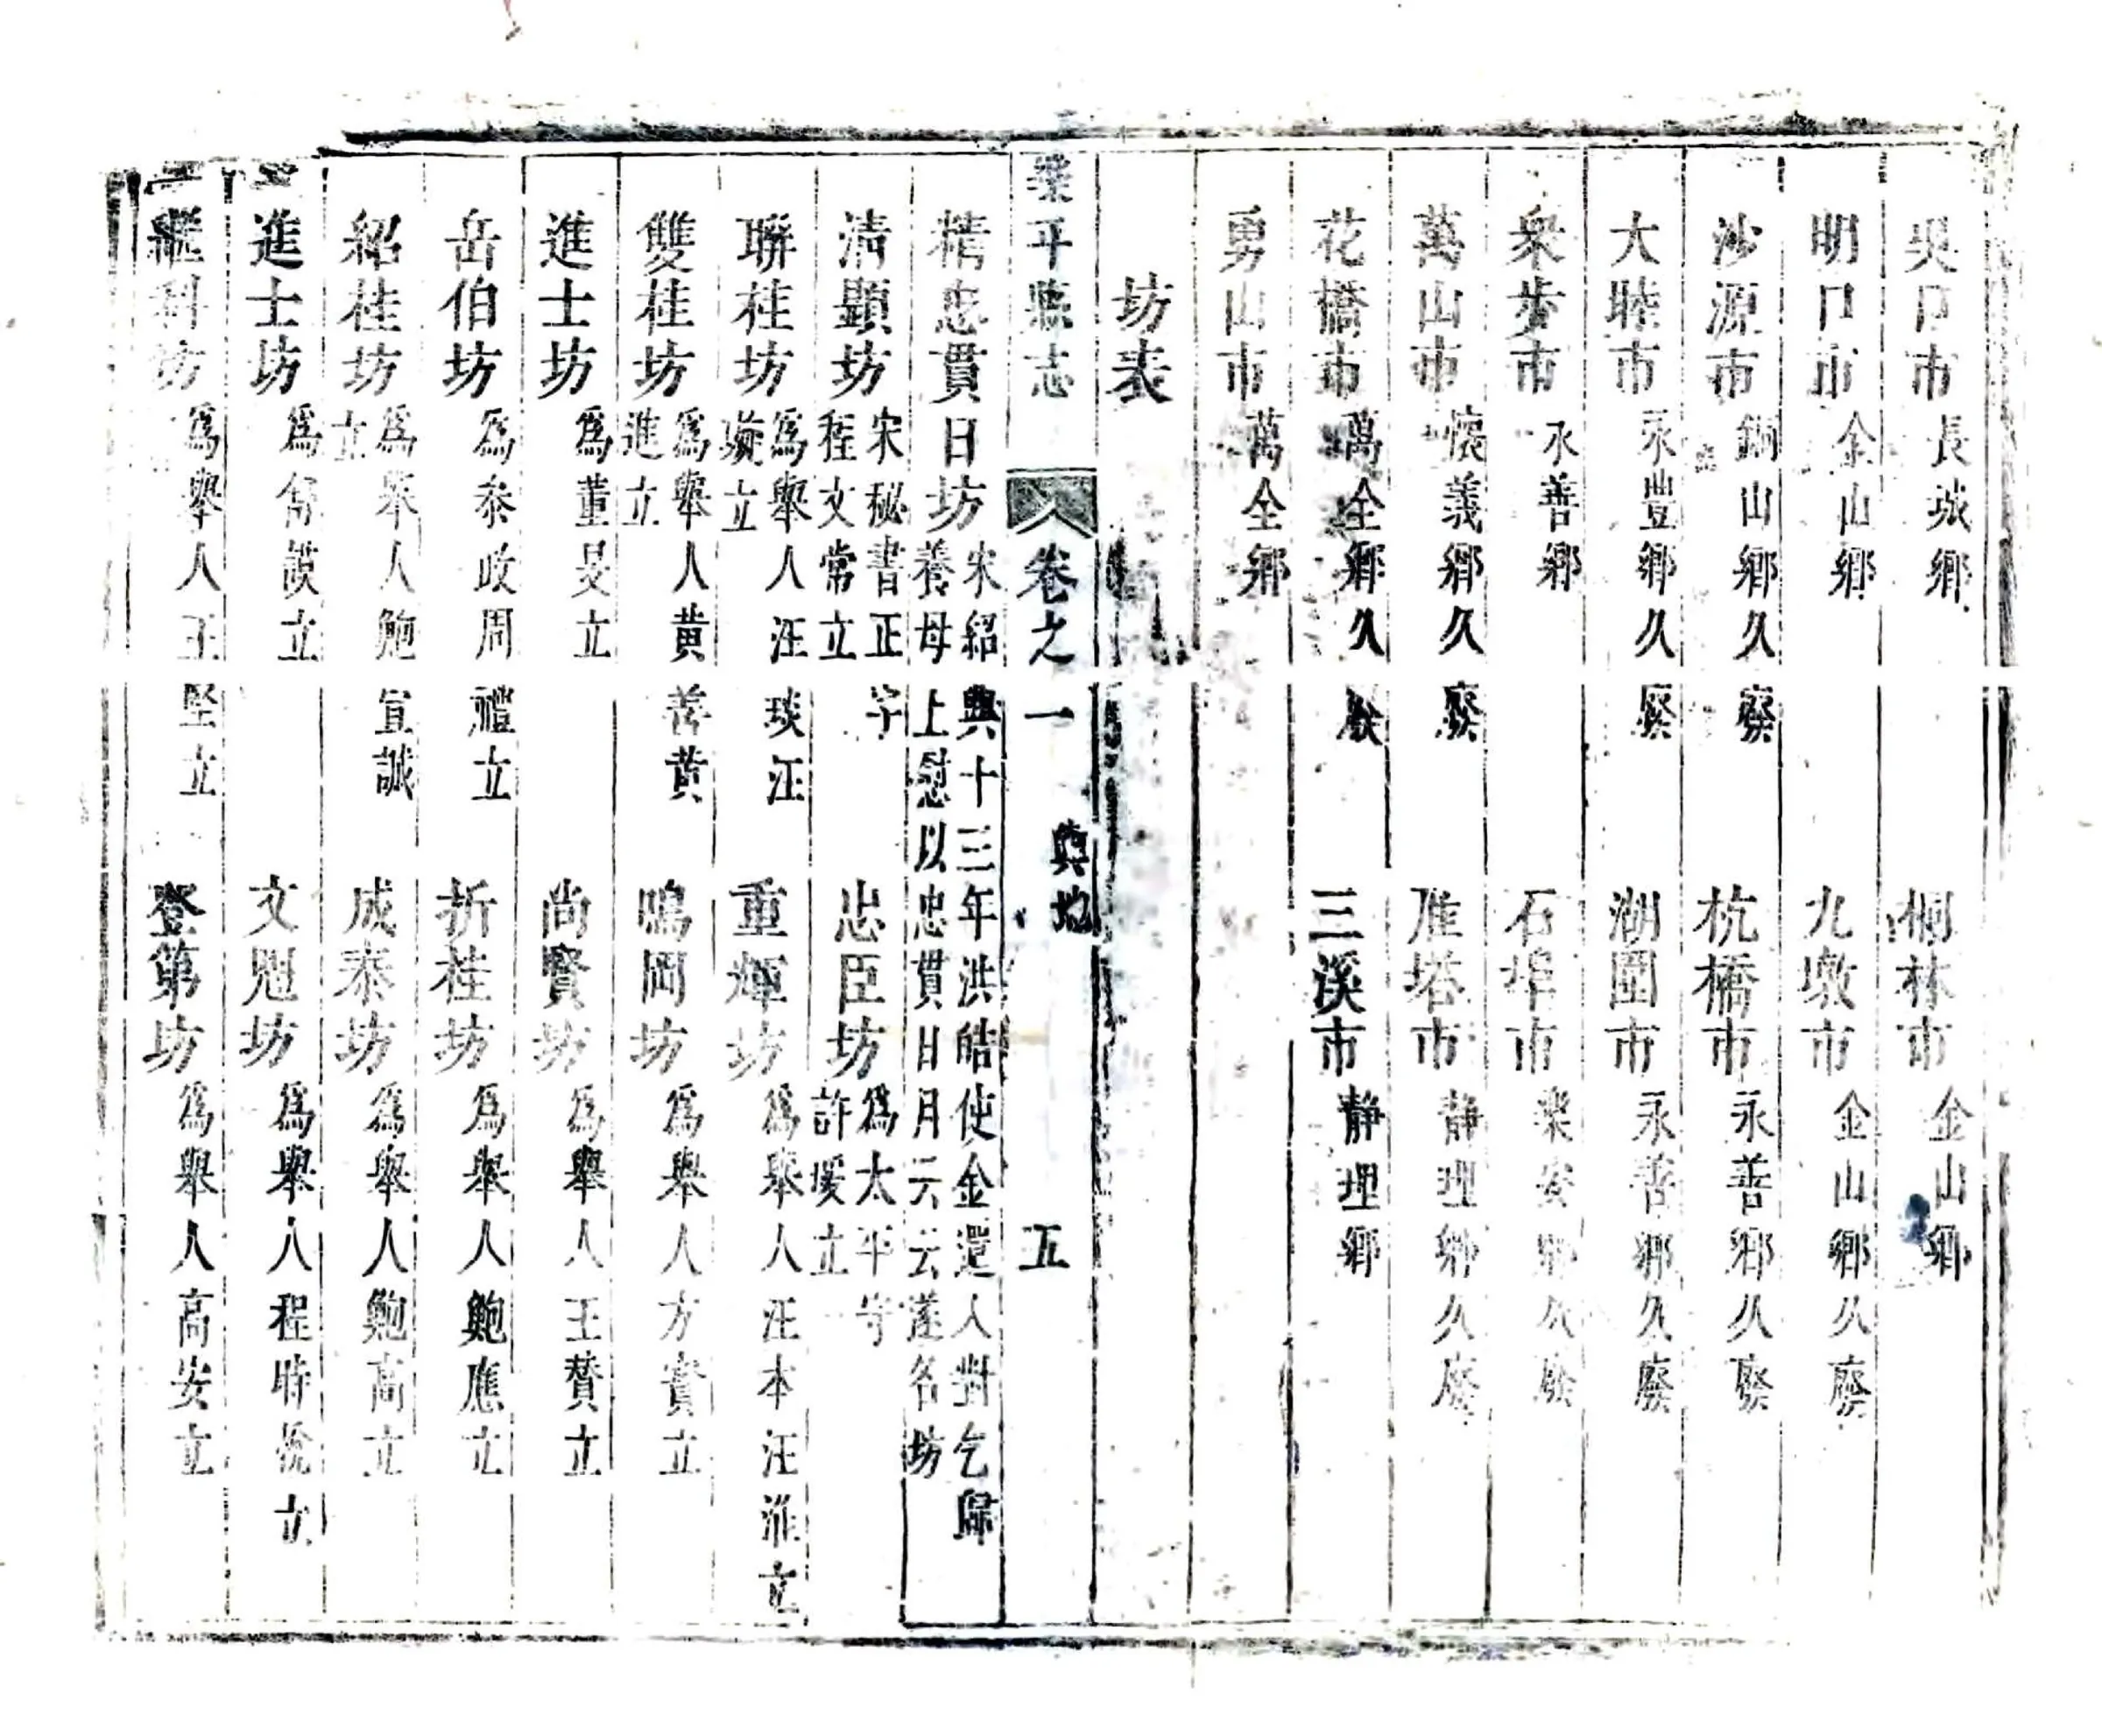 吳口市長城鄉 桐林市金山鄉
明口市金山鄉 九墩市金山鄉久廢
沙源市銅山鄉久廢 杭橋市永善鄉久廢
大睦市永豐鄉久廢 湖園市永善鄉久廢
眾步市永善鄉 石埠市樂安鄉久廢
萬山市懷義鄉久廢 雁塔市靜理鄉久廢
花橋市萬全鄉久廢 三溪市靜理鄉
勇山市萬全鄉
坊表
樂平縣志 卷之一 輿地 五
精忠貫日坊宋紹興十三年洪皓使金還入對乞歸養母上慰以忠貫日月云云遂名坊
清顯坊宋秘書正字程文常立 忠臣坊為太平守許瑗立
聯桂坊為舉人汪琰汪立 重輝坊為舉人汪本汪淮立
雙桂坊為舉人黃善黃進立 鳴岡坊為舉人方賓立
進士坊為董旻立 尚賢坊為舉人王贊立
岳伯坊為叅政周禮立 折桂坊為舉人鮑應立
紹桂坊為舉人鮑宜誠立 成泰坊為舉人鮑高立
進士坊為喬謨立 文魁坊為舉人程時立
繼科坊為舉人王堅立 登第坊為舉人高安立